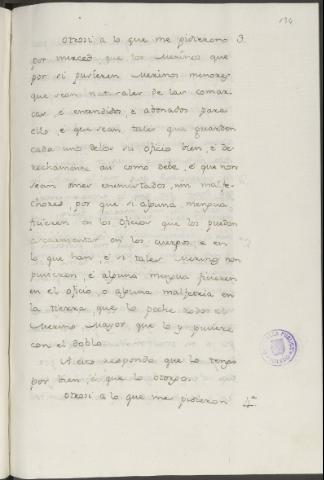 134
Otrosi a lo que me pidieron 3.
por merced, que los Merinos que
por si pusieren Merinos menores
que sean naturales de las comar-
cas e entendidos, e abonados para
ello, e que sean tales que guarden
cada uno dellos su oficio bien, e de-
rechamente asi como debe, e que non
sean omes enemistados, nin malfe-
chores, por que si alguna mengua
ficieren en los oficios que los puedan
escarmentar en los cuerpos e en
lo que han, e si tales Merinos non
pusieren, e alguna mengua ficieren
en el oficio, o alguna malfetria en
la tierra, que lo peche todo el
Merino Mayor, que lo y pusiere
con el doblo.
A esto respondo que lo tengo
por bien, e que lo otorgo.
Otrosi a lo que me pidieron 4ª